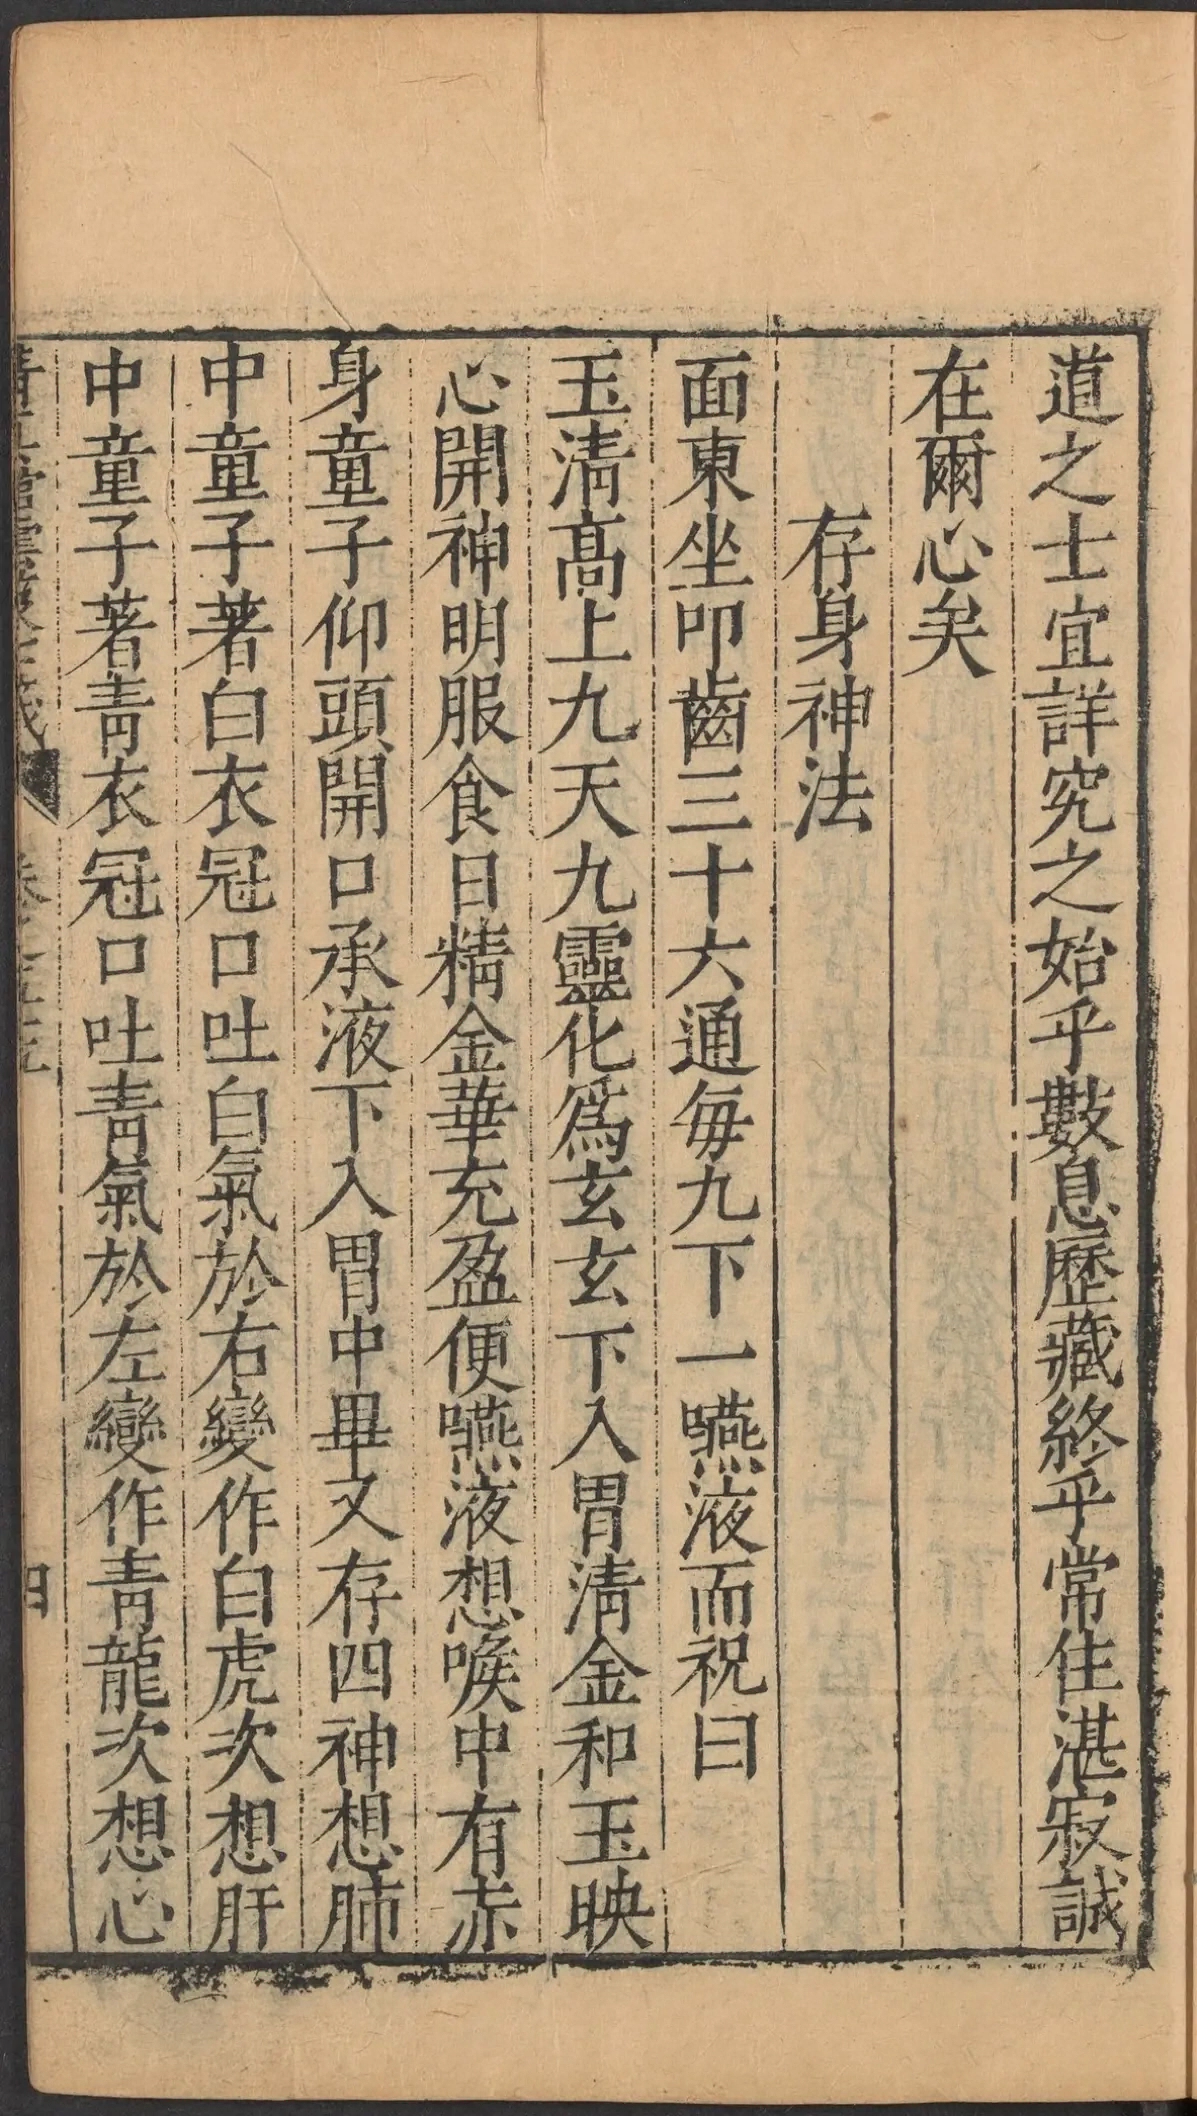 道之士宜詳究之始乎數息歷藏終乎常住湛寂誠
在爾心矣
存身神法
面東坐叩齒三十六通每九下一嚥液而祝曰
玉清高上九天九靈化爲玄玄下入胃清金和玉映
心開神明服食日精金華充盈便嚥液想喉中有赤
身童子仰頭開口承液下入胃中畢又存四神想肺
中童子著白衣冠口吐白氣於右變作白虎次想肝
中童子著青衣冠口吐青氣於左變作青龍次想心
四